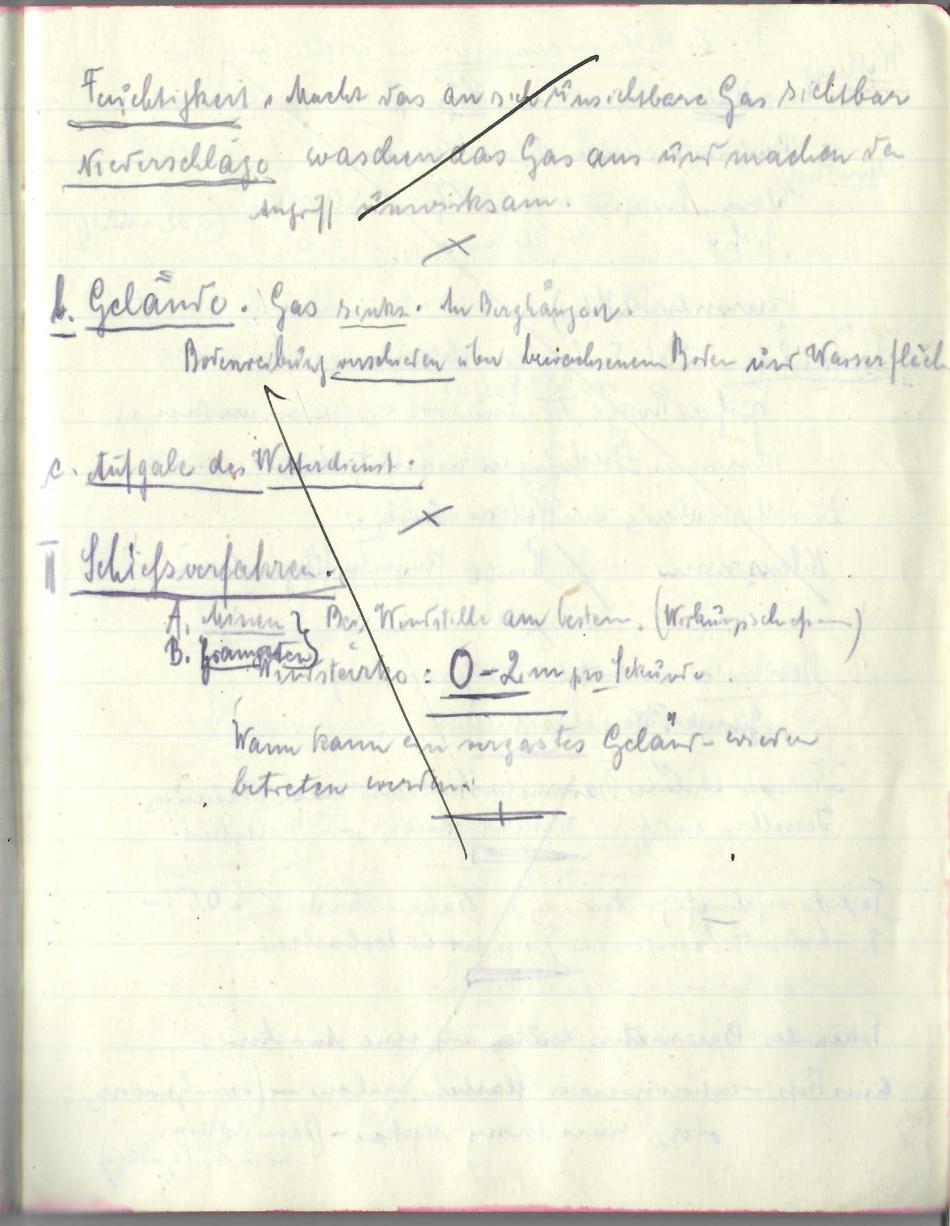 Feuchtigkeit. Macht das an sich unsichtbare Gas sichtbar
Niederschläge waschen das Gas aus und machen de
Angriff unwirksam.
b. Gelände. Gas sinkt. An Berghängen.
Bodenreibung verschieden über bewachsenem Boden und Wasserfläch
c. Aufgabe des Wetterdienst.
II Schießverfahren.
A. Minen } Bei Windstille am besten. (Wirkungsschießen)
B. Granaten
Windstärke: 0-2 m pro Sekunde
Wann kann ein vergastes Gelände wieder
betreten werden.